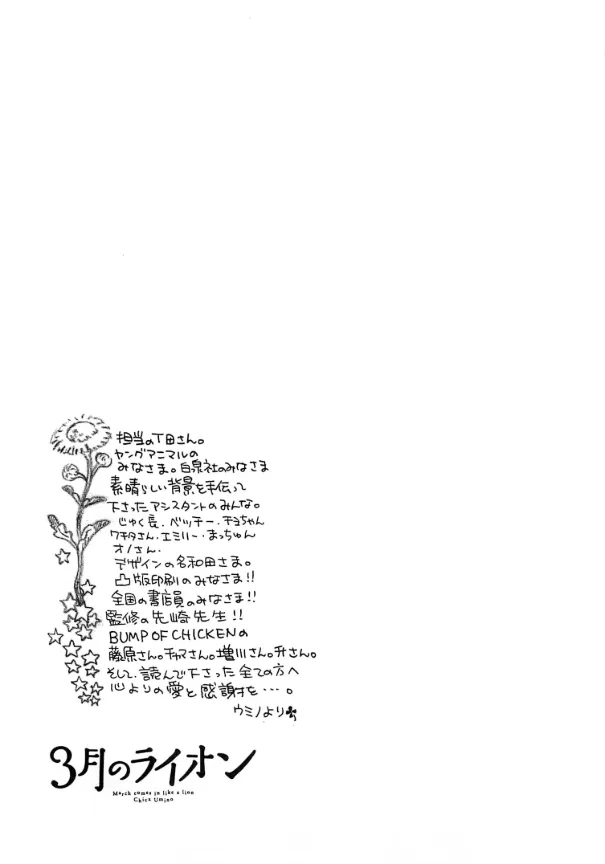 担当のT田さん。
ヤングアニマルの
みなさま。白泉社のみなさま
素晴らしい背景を手伝って
下さったアシスタントのみんな。
じゅく長．ベッチー．チョちゃん
ワキタさん．エミリー．まっちゅん
オノさん．
デザインの名和田さま。
凸版印刷のみなさま!!
全国の書店員のみなさま!!
監修の先崎先生!!
BUMP OF CHICKENの
藤原さん。チャマさん。増川さん。升さん。
そして．読んで下さった全ての方へ
心よりの愛と感謝を…。
ウミノより
3月のライオン
March comes in like a lion
Chica Umino